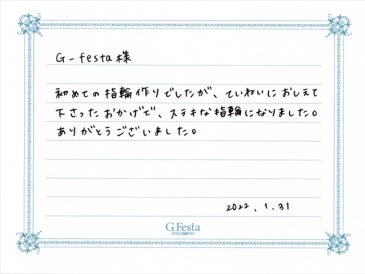 G-festa様
初めての指輪作りでしたが、ていねいにおしえて
下さったおかげで、ステキな指輪になりました。
ありがとうございました。
2022.1.31
G.Festa